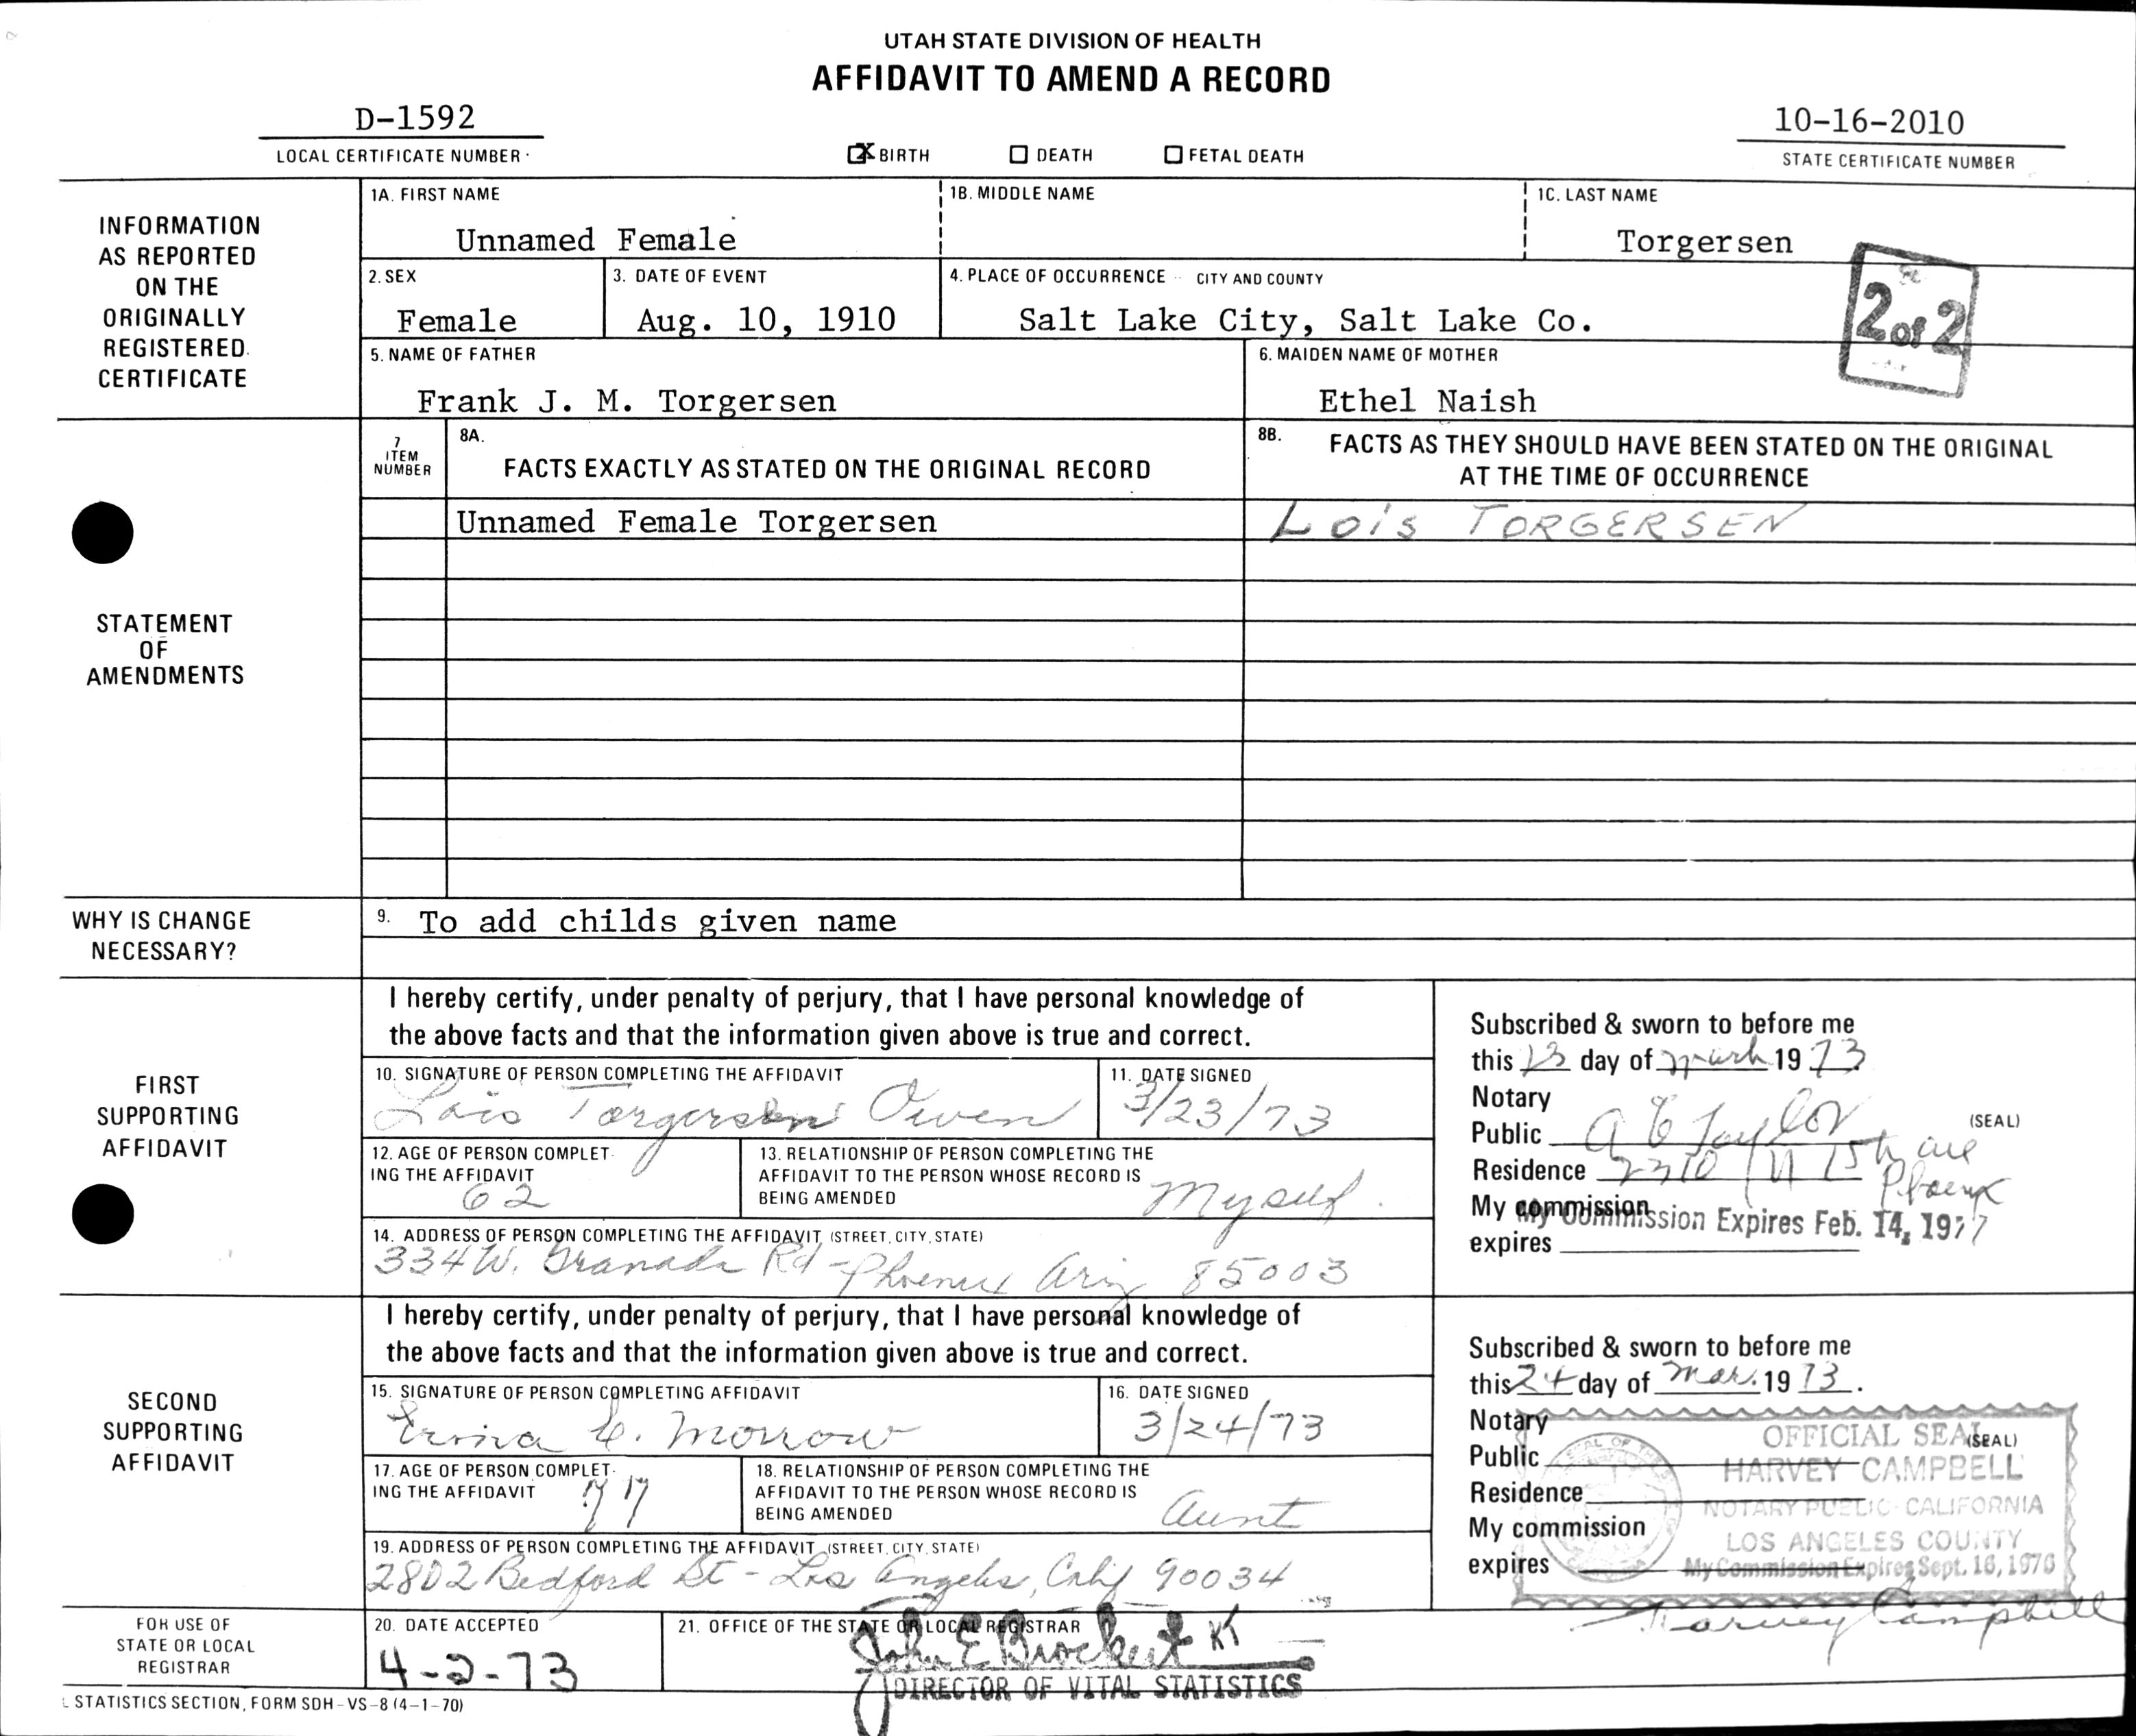 UTAH STATE DIVISION OF HEALTH
AFFIDAVIT TO AMEND A RECORD
D-1592
LOCAL CERTIFICATE NUMBER
X BIRTH DEATH FETAL DEATH
10-16-2010
STATE CERTIFICATE NUMBER
INFORMATION AS REPORTED ON THE ORIGINALLY REGISTERED CERTIFICATE
1A. FIRST NAME
Unnamed Female
1B. MIDDLE NAME
1C. LAST NAME
Torgersen
2. SEX
Female
3. DATE OF EVENT
Aug. 10, 1910
4. PLACE OF OCCURRENCE CITY AND COUNTY
Salt Lake City, Salt Lake Co.
2 of 2
5. NAME OF FATHER
Frank J. M. Torgersen
6. MAIDEN NAME OF MOTHER
Ethel Naish
STATEMENT OF AMENDMENTS
7 ITEM NUMBER
8A. FACTS EXACTLY AS STATED ON THE ORIGINAL RECORD
8B. FACTS AS THEY SHOULD HAVE BEEN STATED ON THE ORIGINAL
AT THE TIME OF OCCURRENCE
Unnamed Female Torgersen
LOiS TORGERSEN
WHY IS CHANGE NECESSARY?
9. To add childs given name
FIRST SUPPORTING AFFIDAVIT
I hereby certify, under penalty of perjury, that I have personal knowledge of
the above facts and that the information given above is true and correct.
10. SIGNATURE OF PERSON COMPLETING THE AFFIDAVIT
Lois Torgersen Owen
11. DATE SIGNED
3/23/73
12. AGE OF PERSON COMPLET-
ING THE AFFIDAVIT
62
13. RELATIONSHIP OF PERSON COMPLETING THE
AFFIDAVIT TO THE PERSON WHOSE RECORD IS
BEING AMENDED
Myself
14. ADDRESS OF PERSON COMPLETING THE AFFIDAVIT (STREET, CITY, STATE)
334 W. Granada Rd - Phoenix Ariz 85003
Subscribed & sworn to before me
this 13 day of march 19 73
Notary
Public A E Taylor (SEAL)
Residence 2310 N 15th ave
Phoenix
My commission
My Commission Expires Feb. 14, 1977
expires
SECOND SUPPORTING AFFIDAVIT
I hereby certify, under penalty of perjury, that I have personal knowledge of
the above facts and that the information given above is true and correct.
15. SIGNATURE OF PERSON COMPLETING AFFIDAVIT
Morrow
16. DATE SIGNED
3/24/73
17. AGE OF PERSON COMPLET-
ING THE AFFIDAVIT
77
18. RELATIONSHIP OF PERSON COMPLETING THE
AFFIDAVIT TO THE PERSON WHOSE RECORD IS
BEING AMENDED
Aunt
19. ADDRESS OF PERSON COMPLETING THE AFFIDAVIT (STREET, CITY, STATE)
2802 Bedford St - Los Angeles, Calif 90034
Subscribed & sworn to before me
this 24 day of Mar. 19 73.
Notary
Public (SEAL)
Residence
My commission
expires
OFFICIAL SEAL
HARVEY CAMPBELL
NOTARY PUBLIC CALIFORNIA
LOS ANGELES COUNTY
My Commission Expires Sept. 16, 1976
Harvey Campbell
FOR USE OF STATE OR LOCAL REGISTRAR
20. DATE ACCEPTED
4-2-73
21. OFFICE OF THE STATE OR LOCAL REGISTRAR
John E Brockert
DIRECTOR OF VITAL STATISTICS
STATISTICS SECTION, FORM SDH-VS-8 (4-1-70)